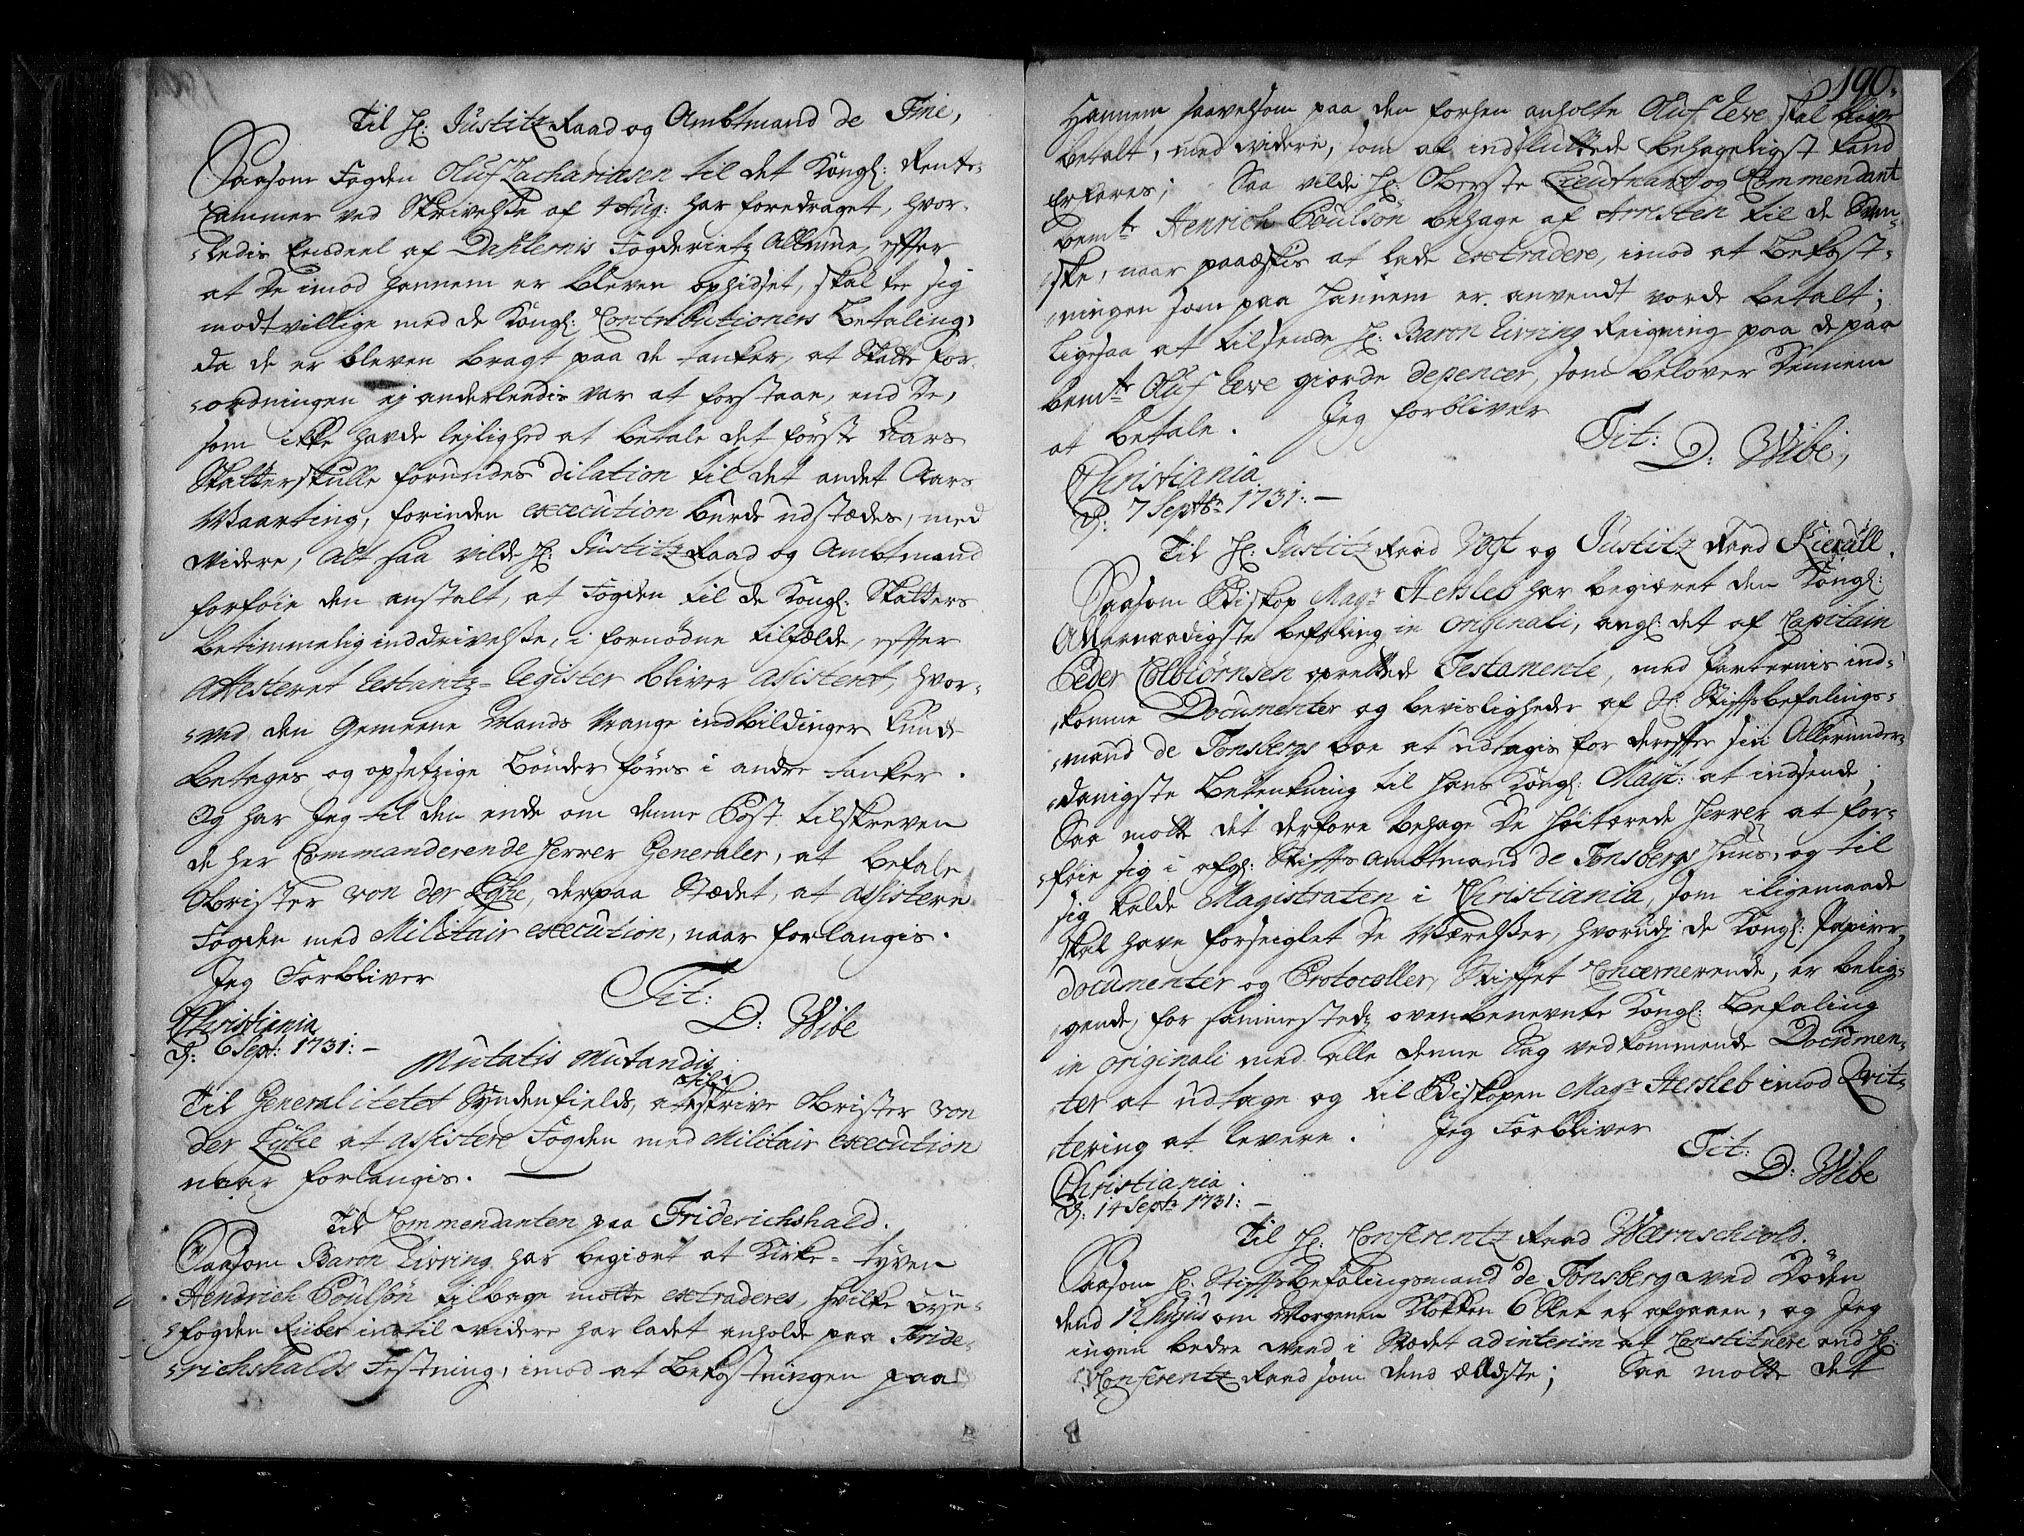 Til H: Justitz Raad og Ambtmand de Fine,
Saasom Fogden Oluf Zachariasen til det Kongl: Rente-
Cammer ved Skrivelse af 4 Aug: har foredraget, hvor-
ledis Eendeel af Dahlernis Fogderietz Allmue, effter
at de imod hannem er bleven ophidset, skal tee sig
modtvillige med de Kongl: Contributioners Betaling,
da de er bleven bragt paa de tanker, at Skatte for-
ordningen ej anderlendis var at forstaae, end De,
som ikke havde lejlighed at betale det første Aars
Skatter skulle forundes dilation til det andet Aars
Waarting, forinden execution burde udstædes, med
videre, alt saa vilde H: Justitz Raad og Ambtmand
forføie den anstalt, at Fogden til de Kongl: Skatters
betimmelig inddrivelse, i fornødne tilfælde, effter
Attesteret Restantz-Register bliver assisteret, hvor-
ved den Gemeene Mands Vrange indbildinger kunde
betages og opsetzige Bønder føres i andre tanker.
Og har Jeg til den ende om denne Post tilskreven
de her Commanderende Herrer Generaler, at befale
Obrister von der Lyhe, derpaa Stædet, at assistere
Fogden med Militair execution, naar forlangis.
Jeg Forbliver
Tit:
D: Wibe
Christiania
D: 6 Sept: 1731: —
Mutatis Mutandis
Til Generalitetet Syndenfields, at tilskrive Obrister von
der Lyhe at assistere Fogden med Militair execution
naar forlangis.
Til Commendanten paa Friderichshald.
Saasom Baron Living har begiært at Kirke-tyven
Hendrich Poulsøn tilbage motte extraderes, hvilke Bye-
fogden Ruber indtil videre har ladet anholde paa Fride-
richshalds Festning, imod at Bekostningen paa
190.
Hannem saavelsom paa den forhen anholte Oluf Reve skal blive
betalt, med videre, som af indsluttede behageligst kand
Erfares; Saa vilde H: Oberste Lieutnant og Commendant
bemte Henrich Poulsøn behage af Arresten til de Sven-
ske, naar paaæskis at lade extradere, imod at Bekost-
ningen som paa Hannem er anvendt vorde betalt;
ligesaa at tilsende H: Baron Living Reigning paa de paa
bemte Oluf Reve giorde depencer, som belover dennem
at betale. Jeg forbliver
Tit:
D: Wibe,
Christiania
D: 7 Septbr 1731: —
Til H: Justitz Raad Vogt og Justitz Raad Kierulf.
Saasom Biskop Magr Hersleb har begiæret den Kongl:
Allernaadigste befaling in originali, angl: det af Capitain
Peder Colbiørnsen oprettede Testamente, med parternis ind-
komne Documenter og bevisligheder af H: Stiftsbefalings-
mand de Tonsbergs boe at udtagis for dereffter sin Allerunder-
danigste Betenkning til Hans Kongl: Mayt: at indsende;
Saa motte det derfore behage de høitærede Herrer at for-
føie sig i afg: Stiffts Ambtmand de Tonsbergs Huus, og til
sig kalde Magistraten i Christiania, som iligemaade
skal have forseiglet de Værelser, hvorudj de Kongl: Papirer,
documenter og Protocoller, Stifftet Concernerende, er belig-
gende, for sammestedz ovenbenevnte Kongl: Befaling
in originali med alle denne Sag vedkommende Documen-
ter at udtage og til Biskopen Magr Hersleb imod Qvit-
tering at levere. Jeg Forbliver
Tit:
D: Wibe
Christiania
D: 14 Septr 1731: —
Til H: Conferentz Raad Wærnschiold.
Saasom H: Stifftsbefalingsmand de Tonsberg ved Døden
dend 12 hujus om Morgenen Klokken 6 slet er afgaaen, og Jeg
ingen bedre veed i Stædet ad interim at Constituere end H:
Conferentz Raad som dend ældste; Saa motte det